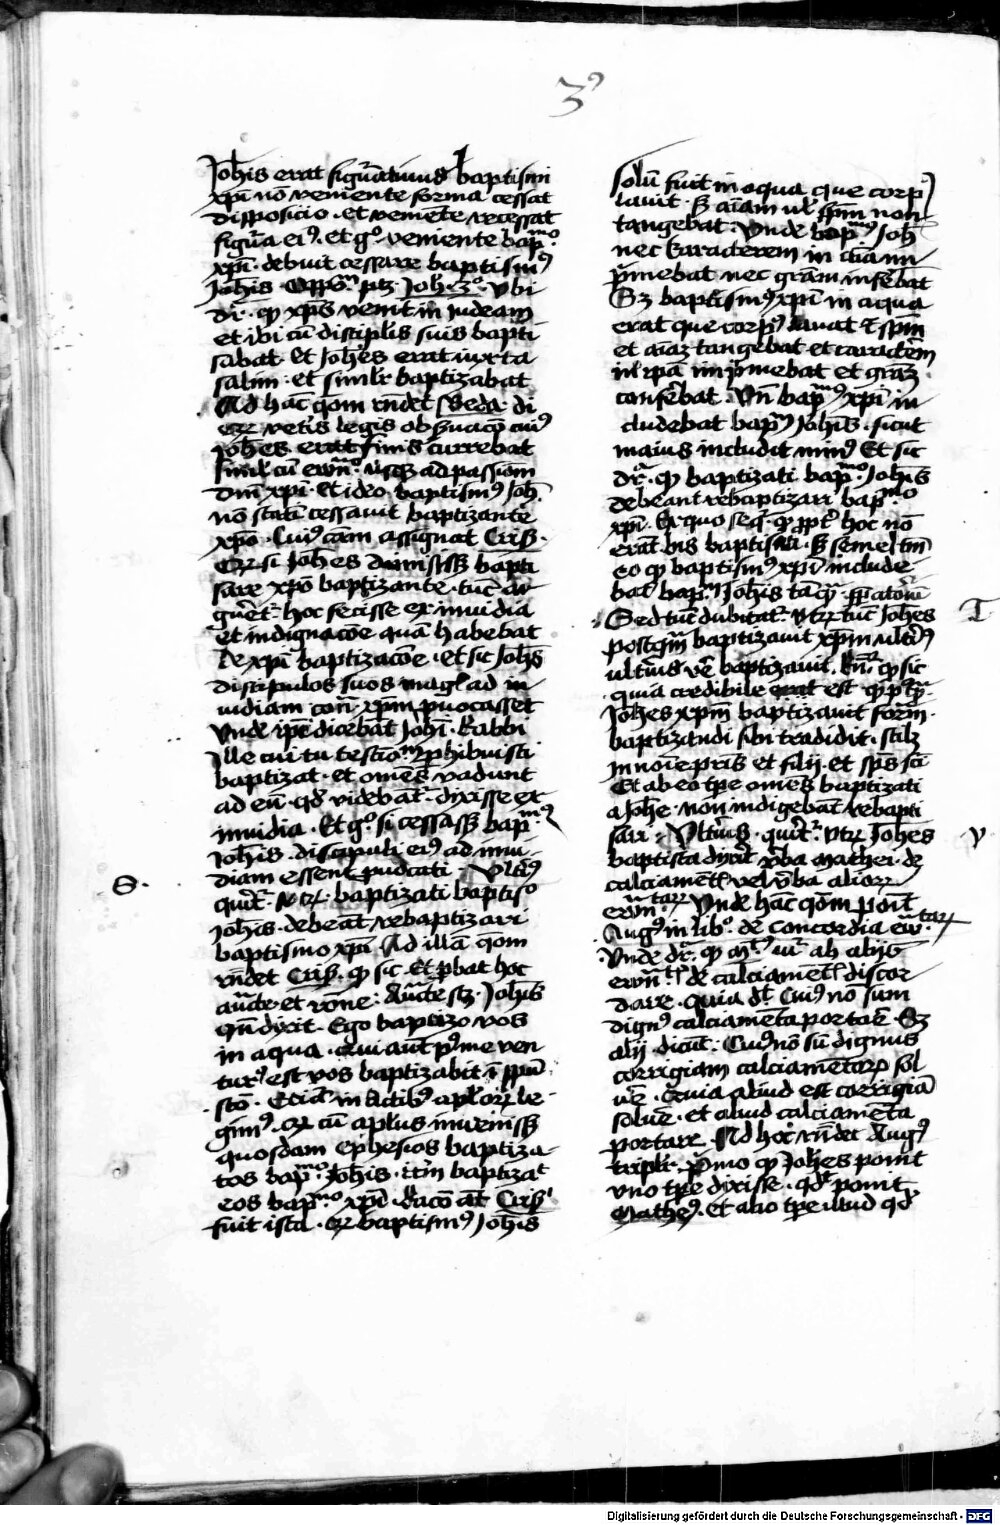 3⁹
Joh̄is erat figuratiuus baptismi
xp̄i nō veniente forma cessat
disposicio · et veniēte recessat
figura ei⁹ · et g° veniente bap^mo
xp̄i · debuit cessare baptism⁹
Joh̄is · Opp^m ptz Joh · 3° · vbi
dr̄ · qp xp̄s venit in iudeam
et ibi cū disciplis suis bapti
sabat · et Joh̄es erat iuxta
salim · et simlr baptizabat
Ad hāc qōm rn̄det Beda · di
vetis legis obs̄uacō cui⁹
Joh̄es erat finis currebat
simil cū ewn^o vsqz ad passiom
dm̄ xp̄i · Et ideo baptism⁹ Joh̄
nō statī cessauit baptizante
xp̄o · Cui⁹ cām assignat Cris̄ ·
si Joh̄es dimisiss̄ bapti
sare xp̄o baptizante · tūc
hoc fecisse ex inuidia
et indignacōe quā habebat
de xp̄i baptizacōe · et sic Joh̄s
discipulos suos magl ad in
uidiam con̄ · xp̄m p̄uocasset
Vnde ip̄i dicebāt Joh̄i · Rabbi
Ille cui tu testīo^m p̄hibuisti
baptizat · et omēs vadunt
ad eū · qd̄ videbat^r · dixisse ex
inuidia · Et g° si cessass̄ bap^m⁹
Joh̄is · discipuli ei⁹ ad inui
diam essent p̄uocati · Vlti⁹
S ·
querit^r · baptizati baptis°
Joh̄is · debeāt rebaptizari
baptismo xp̄i · Ad illā qōm
rn̄det Cris̄ · qp sic · et p̄bat hoc
auctē · et rōne : Auctē sz · Joh̄is
qn̄ dixit · Ego baptizo vos
in aqua · qui aut p⁹ me ven
tur⁹ est vos baptizabit ī spū
scō · Eciā in Actib⁹ aplor le ·
gim⁹ · cū aplus inueniss̄
quosdam ephesios baptiza ·
tos bap^mo Joh̄is · itm baptizat
eos bap^mo xp̄i · Racō at Cris̄
fuit ista · baptism⁹ Joh̄is
solū fuit in aqua que corp⁹
lauit · S̄ aīam vl sp̄m non
tangebat : Vnde bap^m⁹ Joh̄
nec karacterem in aīa im
p̄mebat nec grām infēbat
Sz baptism⁹ xp̄i in aqua
erat que corp⁹ lauat et sp̄m
et aīaz tangebat et caractēm
in ip̄a imp̄mebat et graz
confēbat · Vn̄ bap^m⁹ xp̄i in
cludebat bap^m Joh̄is · sicut
maius includit min⁹ Et sic
dr̄ · qp baptizati bap^mo Joh̄is
debeant rebaptizari bap^mo
xp̄i · Ex quo seq^r · qp ppt hoc nō
erāt bis baptisati · s̄ semel tm̄
eo qp baptism⁹ xp̄i include
bat bap^m Joh̄is tāq
Sed tūc dubitat^r : vtrz tūc Joh̄es
T
postqm̄ baptizauit xp̄m vlti⁹
ultimus vē baptizauit · Rn̄^r qp sic
quia credibile erat est qp
Joh̄es xp̄m baptizauit form̄ ·
baptizandi sibi tradidit · scilz
In noīe pris et filij · et sp̄s sci
Et ab eo tp̄e omēs baptizati
a Joh̄e · non indigebāt rebapti
sari · Vltīus · querit^r · vtrz Joh̄es
V
baptista dixit v̄ba Mathei · de
calciamētl vel v̄ba alior
ewn^tarz Vnde hāc qōm pōit
Aug⁹ in lib° · de Concordia ew^tarz
Vnde dr̄ · qp ab alijs
ewn^tl de calciamētl discor
dare · Quia dt Cui⁹ nō sum
dign⁹ calciamēta portare · Sz
alij dicūt : Cui⁹ nō sū dignus
corrigiam calciamētorz sol
uē · Quia aliud est corrigiā
soluē · et aliud calciamēta
portare · Ad hoc rn̄det Aug⁹
triplr · P̄mo qp Joh̄es ponit
vno tp̄e dixisse · qd̄ ponit
Mathe⁹ · et alio tp̄e illud qd̄
Digitalisierung gefördert durch die Deutsche Forschungsgemeinschaft - DFG